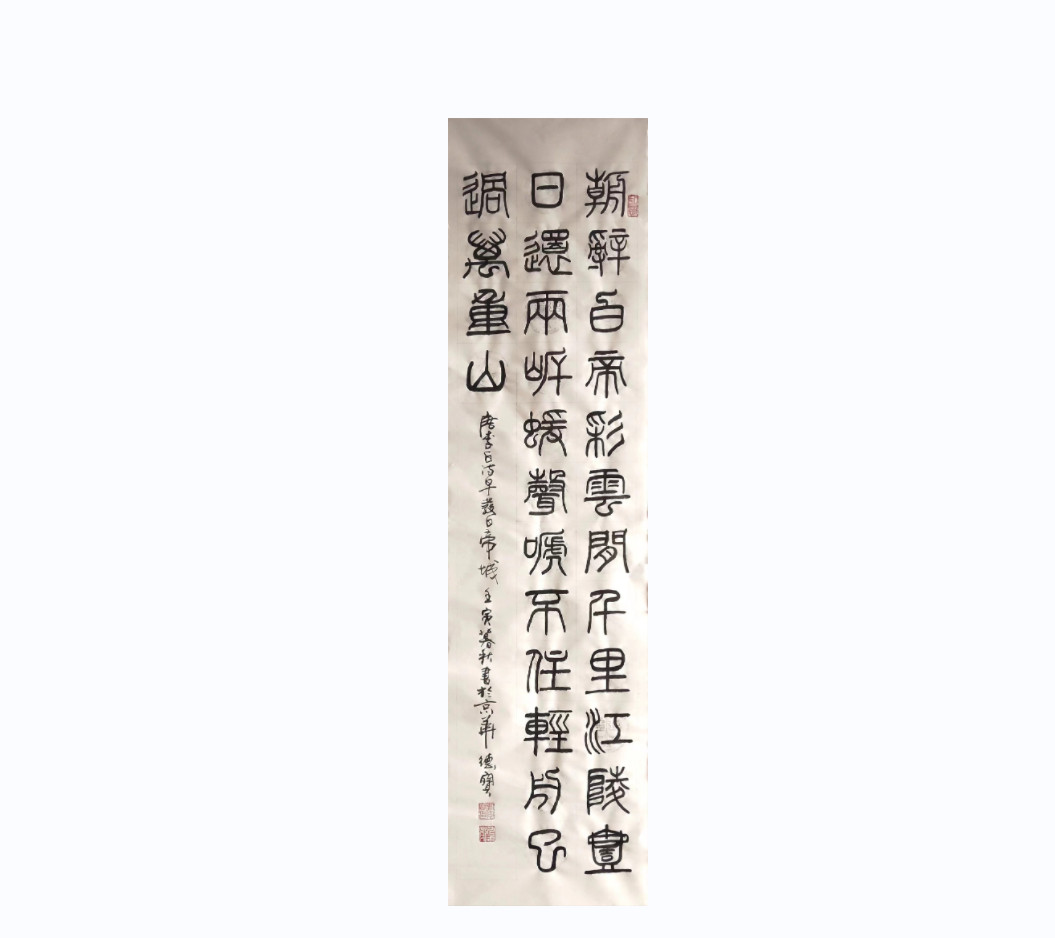 朝辭白帝彩雲間千里江陵壹
日還兩岸蝯聲嗁不住輕舟已
過萬重山
唐李白诗早發白帝城 壬寅暮秋書於京華 德寶